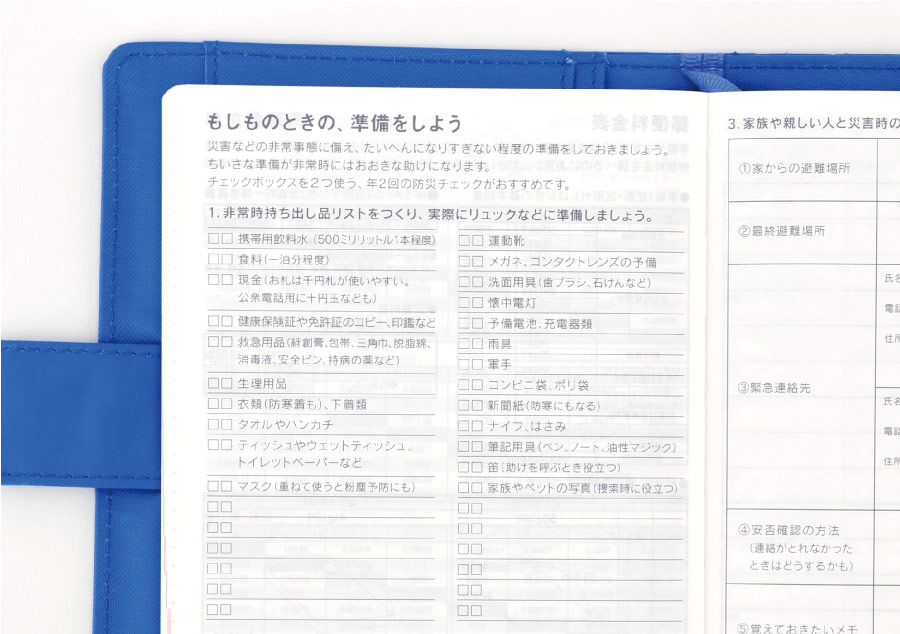 もしものときの、準備をしよう
災害などの非常事態に備え、たいへんになりすぎない程度の準備をしておきましょう。
ちいさな準備が非常時にはおおきな助けになります。
チェックボックスを2つ使う、年2回の防災チェックがおすすめです。
1. 非常時持ち出し品リストをつくり、実際にリュックなどに準備しましょう。
□□ 携帯用飲料水（500ミリリットル1本程度）
□□ 食料（一泊分程度）
□□ 現金（お札は千円札が使いやすい。
公衆電話用に十円玉なども）
□□ 健康保険証や免許証のコピー、印鑑など
□□ 救急用品（絆創膏、包帯、三角巾、脱脂綿、
消毒液、安全ピン、持病の薬など）
□□ 生理用品
□□ 衣類（防寒着も）、下着類
□□ タオルやハンカチ
□□ ティッシュやウェットティッシュ、
トイレットペーパーなど
□□ マスク（重ねて使うと粉塵予防にも）
□□ 運動靴
□□ メガネ、コンタクトレンズの予備
□□ 洗面用具（歯ブラシ、石けんなど）
□□ 懐中電灯
□□ 予備電池、充電器類
□□ 雨具
□□ 軍手
□□ コンビニ袋、ポリ袋
□□ 新聞紙（防寒にもなる）
□□ ナイフ、はさみ
□□ 筆記用具（ペン、ノート、油性マジック）
□□ 笛（助けを呼ぶとき役立つ）
□□ 家族やペットの写真（捜索時に役立つ）
3. 家族や親しい人と災害時の
①家からの避難場所
②最終避難場所
③緊急連絡先
氏名
電話
住所
氏名
電話
住所
④安否確認の方法
（連絡がとれなかった
ときはどうするかも）
⑤覚えておきたいメモ